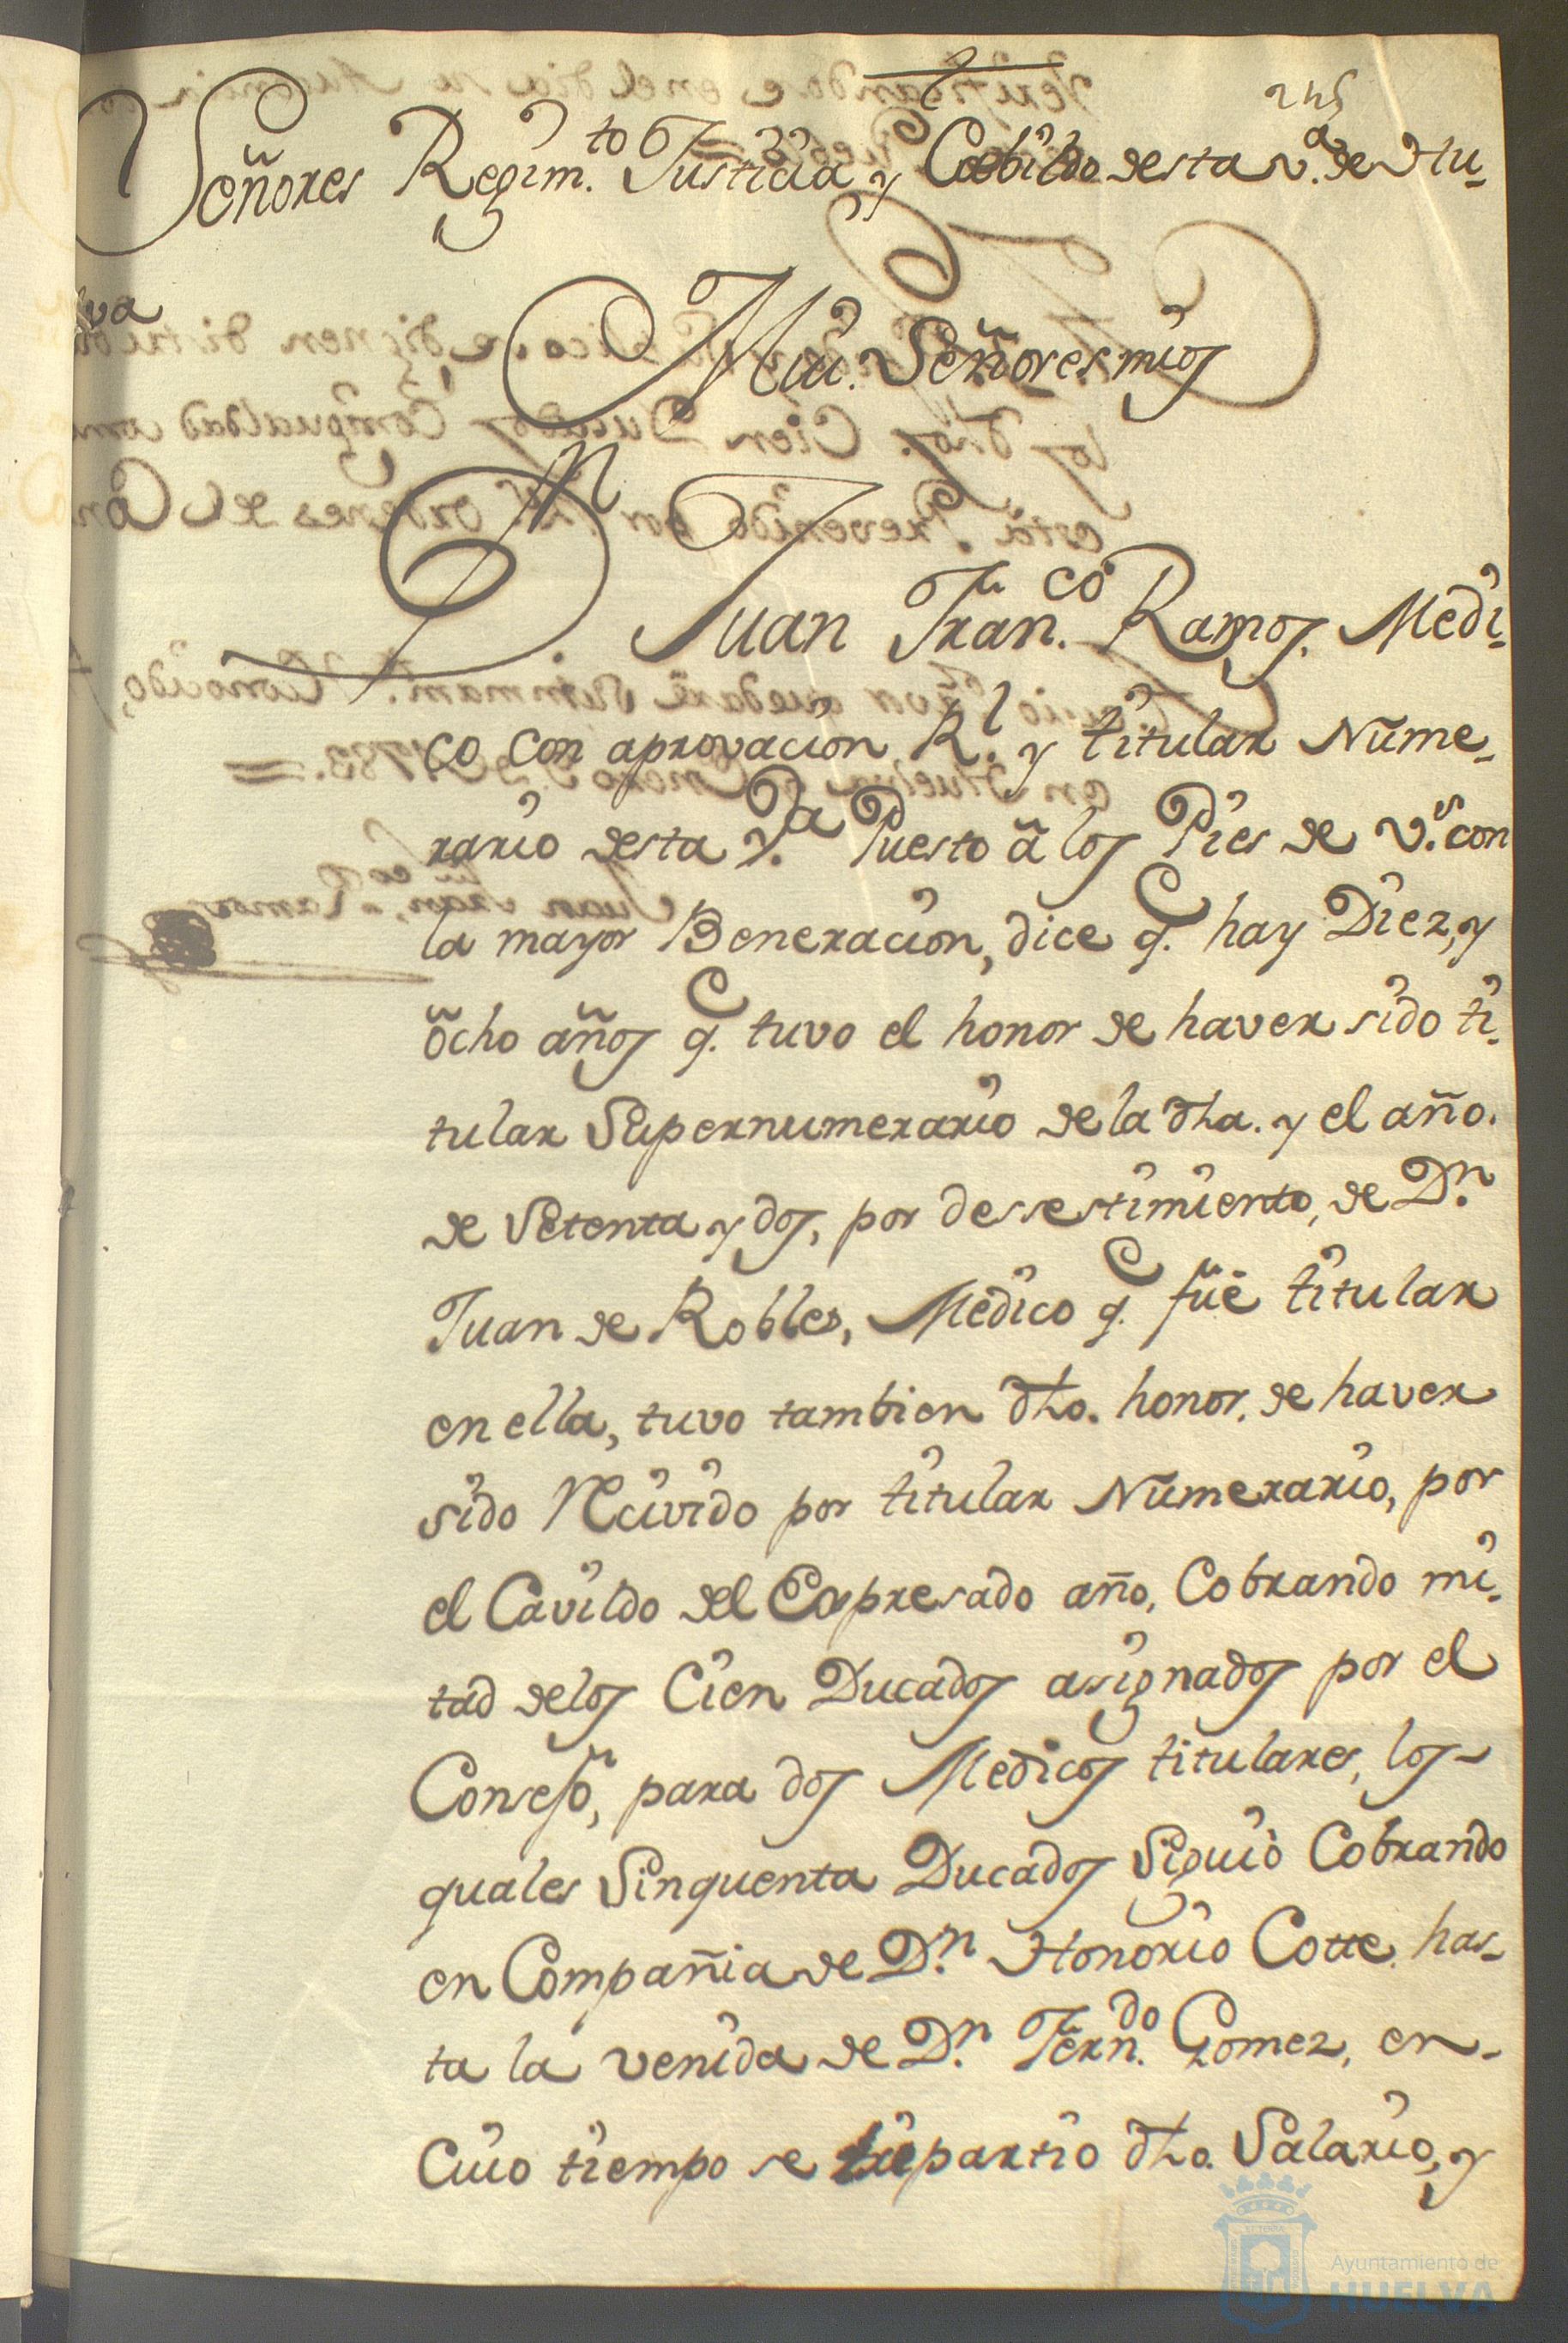 245
Señores Regim.to Justicia y Cabildo desta v.a de Hu-
lva
Mui. Señores mios
Dn Juan Fran.co Ramos. Medi-
co con aprovacion R.l y titular Nume-
rario desta V.a Puesto â los Pies de V.s con
la mayor Beneracion, dice q.e hay Diez, y
ôcho años q.e tuvo el honor de haver sido ti-
tular Supernumerario de la dha. y el año.
de Setenta y dos, por dessestimiento, de D.n
Juan de Robles, Medico q.e fuê titular
en ella, tuvo tambien dho. honor, de haver
sido Recivido por titular Numerario, por
el Cavildo del Expresado año, Cobrando mi-
tad delos Cien Ducados asignados por el
Consejo, para dos Medicos titulares, los-
quales Sinquenta Ducados Siguiò Cobrando
en Compañia de D.n Honorio Cotte. has-
ta la venida de D.n Fern.do Gomez, en-
Cuio tiempo se repartio dho. Salario, y
Ayuntamiento de
HUELVA